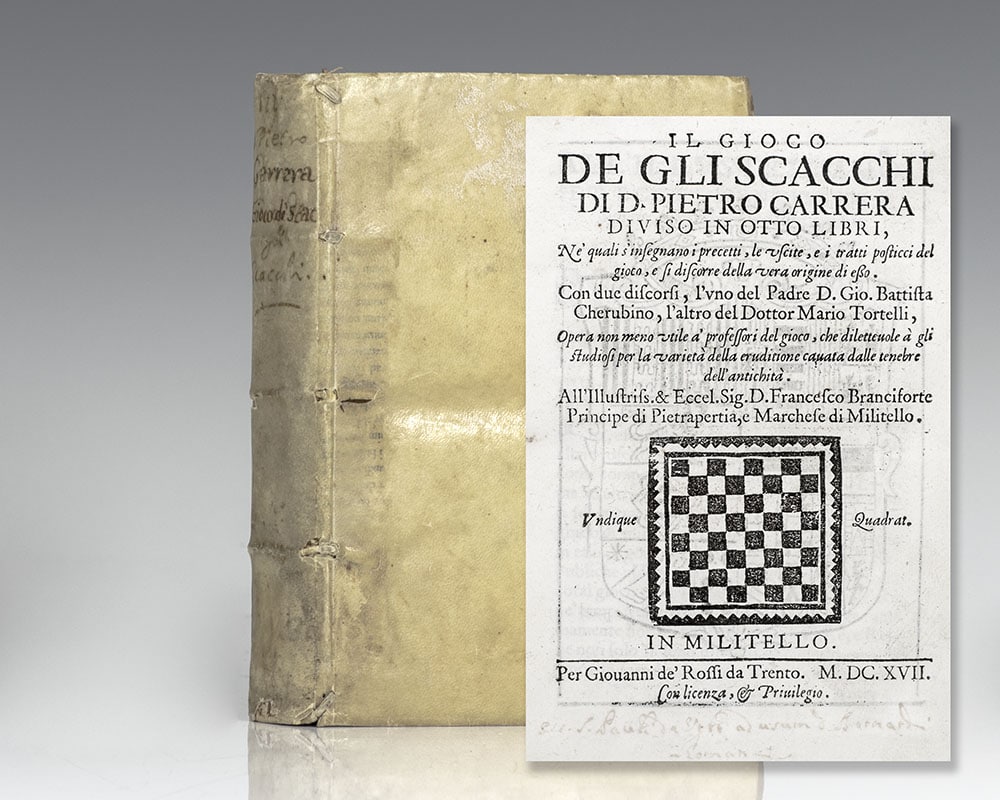 Pietro
Carrera
IL GIOCO
DE GLI SCACCHI
DI D. PIETRO CARRERA
DIVISO IN OTTO LIBRI,
Ne' quali s'insegnano i precetti, le vscite, e i tratti posticci del
gioco, e si discorre della vera origine di esso.
Con due discorsi, l'vno del Padre D. Gio. Battista
Cherubino, l'altro del Dottor Mario Tortelli,
Opera non meno vtile a' professori del gioco, che diletteuole à gli
studiosi per la varietà della eruditione cauata dalle tenebre
dell'antichità.
All'Illustriss. & Eccel. Sig. D. Francesco Branciforte
Principe di Pietrapertia, e Marchese di Militello.
Vndique
Quadrat.
IN MILITELLO.
Per Giouanni de' Rossi da Trento. M. DC. XVII.
Con licenza, & Priuilegio.